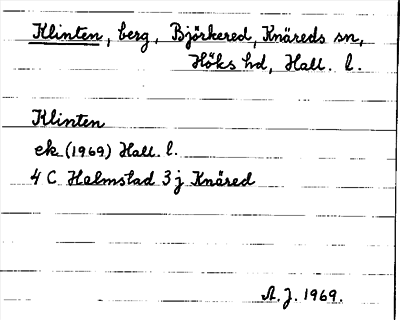 Klinten, berg, Björkered, Knäreds sn,
Höks hd, Hall. l.
Klinten
ek (1969) Hall. l.
4 C Halmstad 3 j Knäred
A. J. 1969.